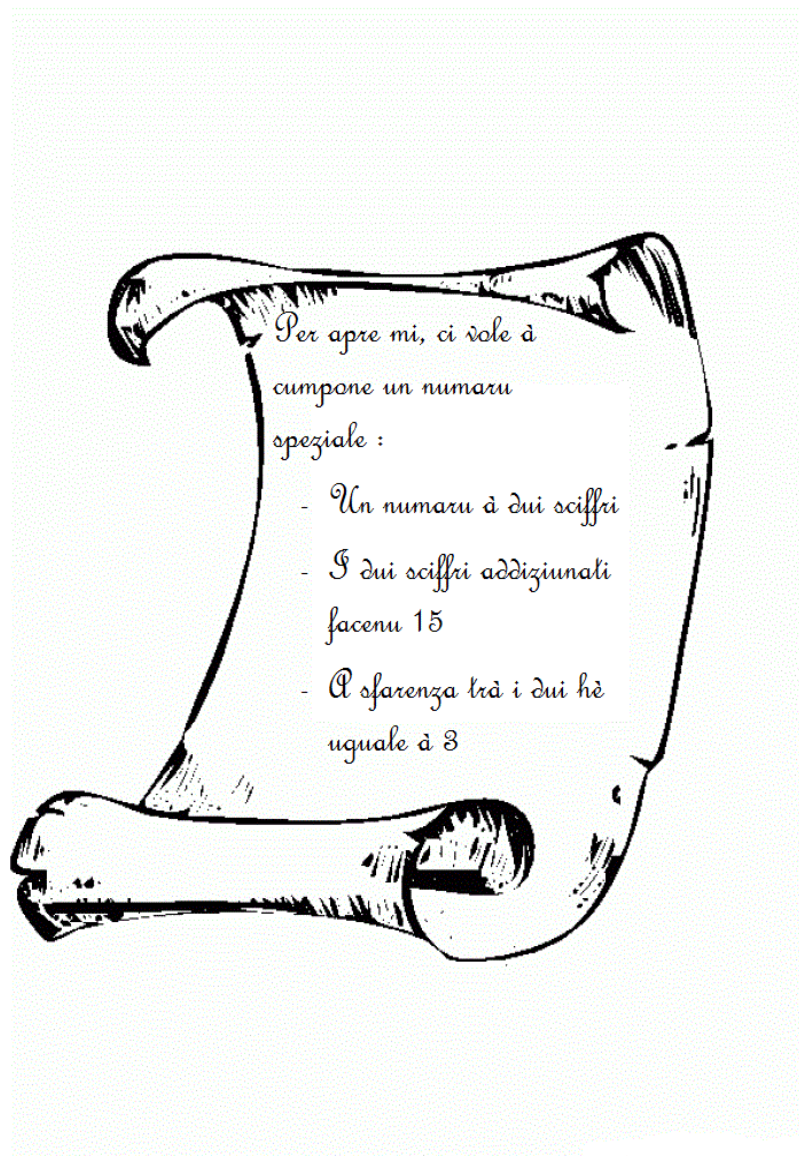 Per apre mi, ci vole à
cumpone un numaru
speziale :
- Un numaru à dui sciffri
- I dui sciffri addiziunati
facenu 15
- A sfarenza trà i dui hè
uguale à 3